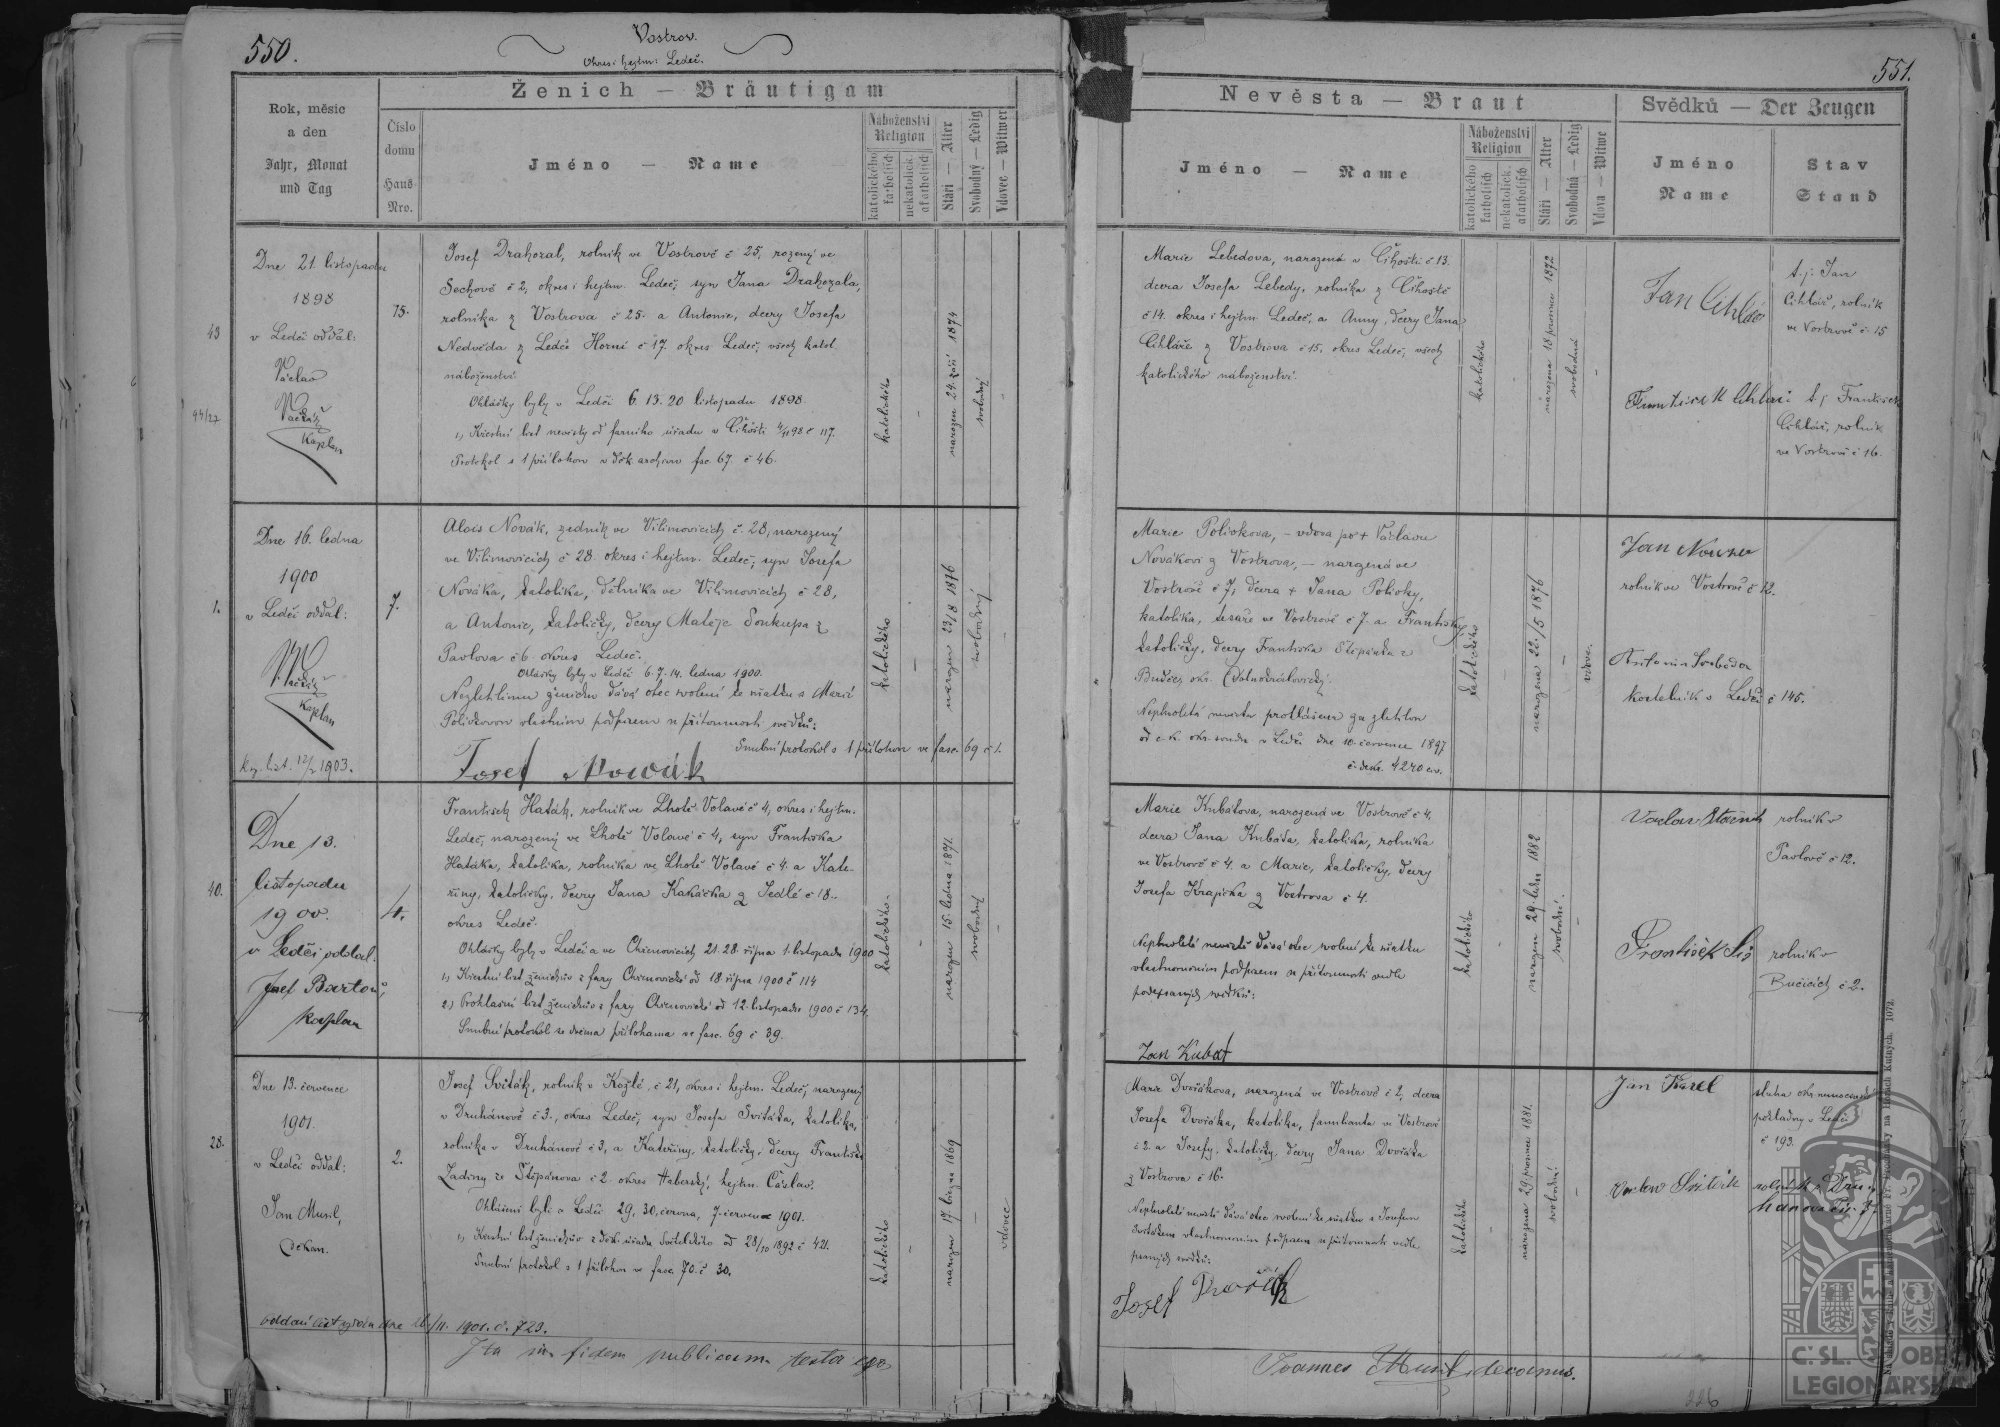 550.
Vostrov.
Okres i hejtm: Ledeč.
Ženich — Bräutigam
Rok, měsíc
a den
Jahr, Monat
und Tag
Číslo
domu
Haus
Nro.
Jméno — Name
Náboženství
Religion
katolického
katholisch
nekatolick.
akatholisch
Stáří — Alter
Svobodný — Ledig
Vdovec — Witwer
43
Dne 21. listopadu
1898
v Ledči oddal:
Václav
Vačkář
Kaplan
15.
Josef Drahozal, rolník ve Vostrově č 25, rozený ve
Sechově č 2, okres i hejtm. Ledeč, syn Jana Drahozala,
rolníka z Vostrova č 25. a Antonie, dcery Josefa
Nedvěda z Ledče Horní č 17. okres Ledeč, všech katol.
náboženství.
Ohlášky byly v Ledči 6. 13. 20 listopadu 1898.
1) Křestní list nevěsty od farního úřadu v Číhošti 4/11 98 č 117.
Protokol s 1 přílohou v děk. archivu fac. 67. č 46.
katolického
narozen 24. září 1874
svobodný
1.
Dne 16. ledna
1900
v Ledči oddal:
Vačkář
Kaplan
7.
Alois Novák, zedník ve Vilimovicích č. 28, narozený
ve Vilimovicích č 28. okres i hejtm. Ledeč, syn Josefa
Nováka, katolíka, dělníka ve Vilimovicích č 28,
a Antonie, katoličky, dcery Matěje Soukupa z
Pavlova č 6. okres Ledeč.
Ohlášky byly v Ledči 6. 7. 14. ledna 1900.
Nezletilému ženichu dává otec svolení ke sňatku s Marií
Polívkovou vlastním podpisem u přítomnosti svědků:
Snubní protokol s 1 přílohou ve fasc. 69 č 1.
Josef Novák
katolického
narozen 23/8 1876
svobodný
40.
Dne 13.
listopadu
1900.
v Ledči oddal:
Josef Bartoň,
kaplan
4.
František Haták, rolník ve Lhotě Volavé č 4, okres i hejtm.
Ledeč, narozený ve Lhotě Volavé č 4, syn Františka
Hatáka, katolíka, rolníka ve Lhotě Volavé č 4. a Kate-
řiny, katoličky, dcery Jana Kakáčka z Sedlé č 18.
okres Ledeč.
Ohlášky byly v Ledči a ve Chřenovicích 21. 28. října 1. listopadu 1900
1) Křestní list ženichův z fary Chřenovické od 18. října 1900 č 114
2) Prohlašní list ženichův z fary Chřenovické od 12. listopadu 1900 č 134.
Snubní protokol se dvěma přílohama ve fasc. 69 č 39.
katolického
narozen 15. ledna 1871.
svobodný
28.
Dne 13. července
1901.
v Ledči oddal:
Jan Musil,
děkan.
2.
Josef Sviták, rolník v Kožlí, č 21, okres i hejtm. Ledeč, narozený
v Druhanově č 3., okres Ledeč, syn Josefa Svitáka, katolíka,
rolníka v Druhanově č 3, a Kateřiny, katoličky, dcery Františka
Zadiny ze Štěpánova č 2. okres Haberský, hejtm. Čáslav.
Ohlášeni byli v Ledči 29. 30. června, 7. července 1901.
1) Křestní list ženichův z děk. úřadu Světelského od 28/10 1892 č 421.
Snubní protokol s 1 přílohou ve fasc. 70. č 30.
katolického
narozen 17. března 1869
vdovec
Ita in fidem publicam testor ego
551.
Nevěsta — Braut
Svědků — Der Zeugen
Jméno — Name
Náboženství
Religion
katolického
katholisch
nekatolick.
akatholisch
Stáří — Alter
Svobodná — Ledig
Vdova — Witwe
Jméno
Name
Stav
Stand
Marie Lebedova, narozená v Číhošti č 13.
dcera Josefa Lebedy, rolníka z Číhoště
č 14. okres i hejtm. Ledeč, a Anny, dcery Jana
Cihláře z Vostrova č 15, okres Ledeč, všech
katolického náboženství.
katolického
narozena 18 prosince 1872
svobodná
Jan Cihlář
t. j. Jan
Cihlář, rolník
ve Vostrově č 15
František Cihlář
t. j. František
Cihlář, rolník
ve Vostrově č 16.
Marie Polívkova, – vdova po + Václavu
Novákovi z Vostrova, – narozená ve
Vostrově č 7, dcera + Jana Polívky,
katolíka, tesaře ve Vostrově č 7. a Františky,
katoličky, dcery Františka Štěpánka z
Nepluoletá nevěsta prohlášena za zletilou
od c. k. okr. soudu v Ledči dne 10. července 1897
katolického
narozena 22./5 1876
vdova.
rolník ve Vostrově č 12.
Antonín Svoboda
kostelník v Ledči č 145.
Marie Kubátova, narozená ve Vostrově č 4,
dcera Jana Kubáta, katolíka, rolníka
ve Vostrově č 4. a Marie, katoličky, dcery
Josefa Krajíčka z Vostrova č 4.
Nepluoleté nevěstě dává otec svolení ke sňatku
vlastnoručním podpisem u přítomnosti vedle
podepsaných svědků:
Jan Kubat
katolického
narozen 29 ledn 1882
svobodná.
rolník v
Pavlově č 12.
rolník v
Bučicích č 2.
Marie Dvořákova, narozená ve Vostrově č 2, dcera
Josefa Dvořáka, katolíka, familianta ve Vostrově
č 2. a Josefy, katoličky, dcery Jana Dvořáka
z Vostrova č 16.
Nepluoleté nevěstě dává otec svolení ke sňatku s Josefem
Svitákem vlastnoručním podpisem u přítomnosti vedle
psaných svědků:
Josef Dvořák
katolického
narozena 29. prosince 1881.
svobodná
Jan Karel
sluha okr. nemocenské
pokladny v Ledči
č 193.
Václav Sviták
rolník z Dru-
hanova čís. 3
Joannes Musil, decanus.
226
Č. SL. OBEC
LEGIONÁŘSKÁ